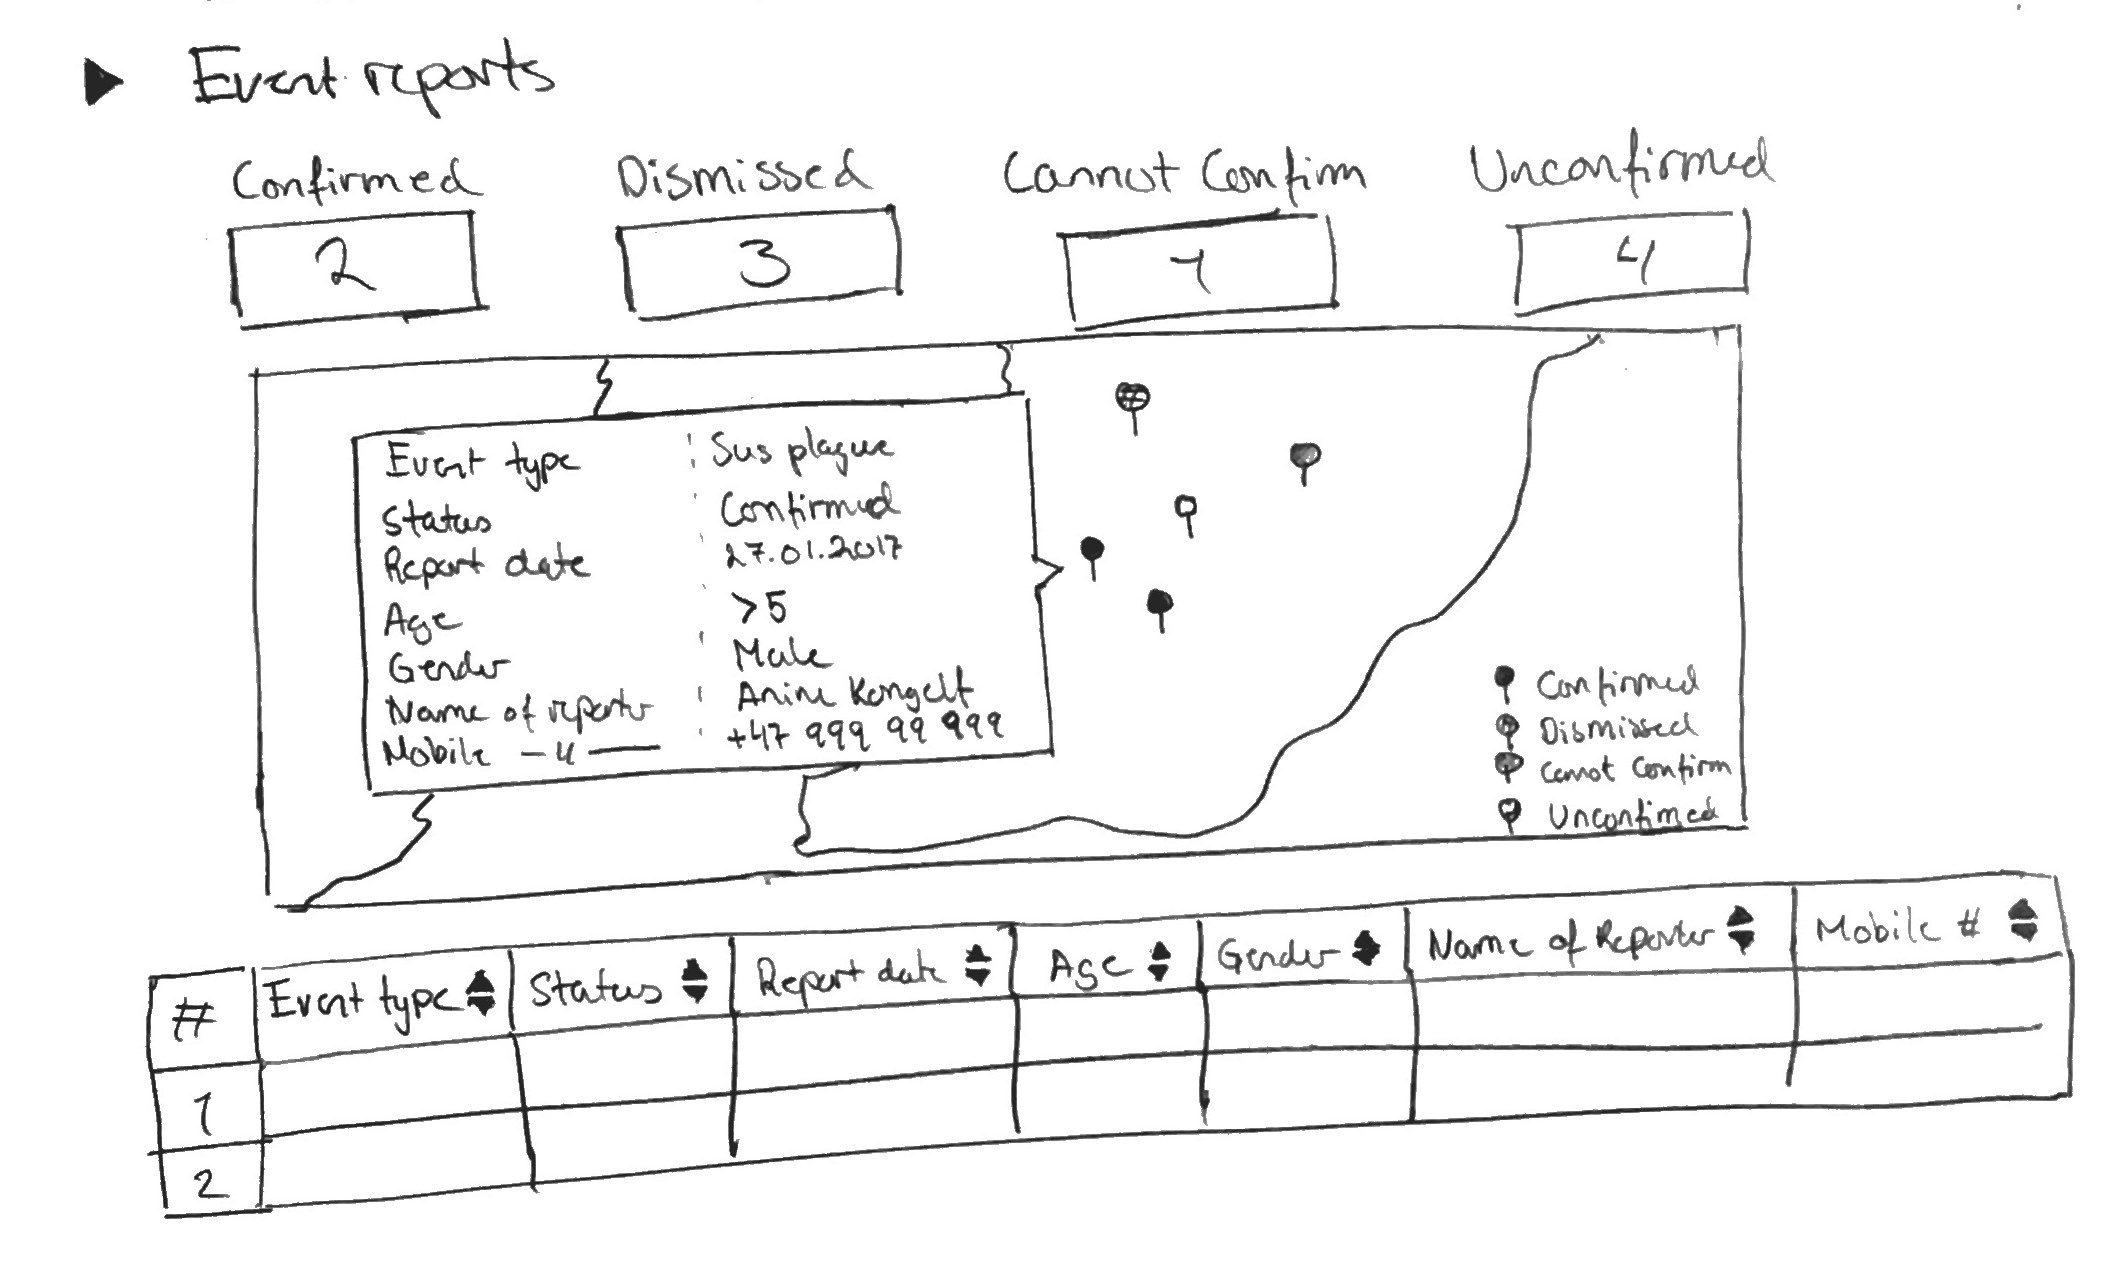 ▶ Event reports
Confirmed Dismissed Cannot Confirm Unconfirmed
2 3 1 4
Event type : Sus plague
Status : Confirmed
Report date : 27.01.2017
Age : >5
Gender : Male
Name of reporter : Anine Kongelf
Mobile —"— : +47 999 99 999
Confirmed
Dismissed
Cannot Confirm
Unconfirmed
# Event type Status Report date Age Gender Name of Reporter Mobile #
1
2